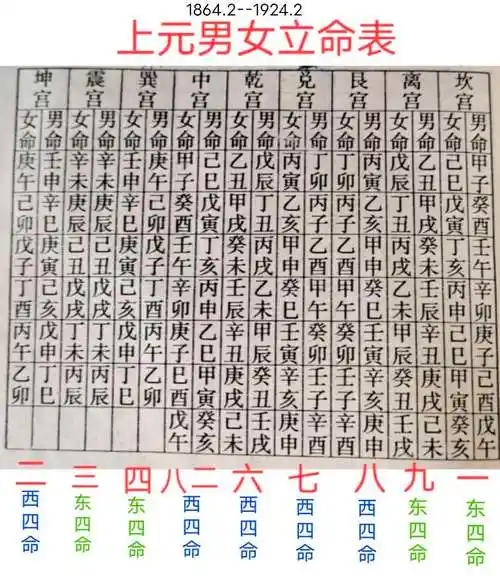 1864.2--1924.2
上元男女立命表
坎宫
男命甲子癸酉壬午辛卯庚子己酉戊午
女命己巳戊寅丁亥丙申乙巳甲寅癸亥
离宫
男命乙丑甲戌癸未壬辰辛丑庚戌己未
女命戊辰丁丑丙戌乙未甲辰癸丑壬戌
艮宫
男命丙寅乙亥甲申癸巳壬寅辛亥庚申
女命丁卯丙子乙酉甲午癸卯壬子辛酉
兑宫
男命丁卯丙子乙酉甲午癸卯壬子辛酉
女命丙寅乙亥甲申癸巳壬寅辛亥庚申
乾宫
男命戊辰丁丑丙戌乙未甲辰癸丑壬戌
女命乙丑甲戌癸未壬辰辛丑庚戌己未
中宫
男命己巳戊寅丁亥丙申乙巳甲寅癸亥
女命甲子癸酉壬午辛卯庚子己酉戊午
巽宫
男命庚午己卯戊子丁酉丙午乙卯
女命壬申辛巳庚寅己亥戊申丁巳
震宫
男命辛未庚辰己丑戊戌丁未丙辰
女命辛未庚辰己丑戊戌丁未丙辰
坤宫
男命壬申辛巳庚寅己亥戊申丁巳
女命庚午己卯戊子丁酉丙午乙卯
二 三 四 八 二 六 七 八 九 一
西四命
东四命
东四命
西四命
西四命
西四命
西四命
东四命
东四命